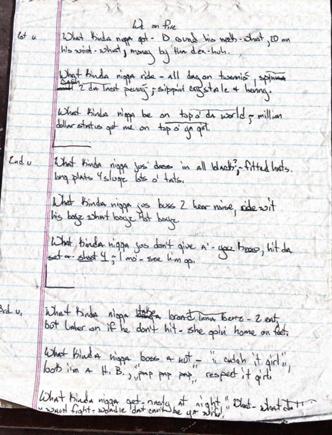 on fire
1st u
What kinda nigga got - D round his neck - what, 20 on
his wrist - what, money by the
What kinda nigga ride - all day on twennis, spinnin
2 da last penny; sippin crystale & henny.
What kinda nigga be on top o' da world; million
dollar status got me on top o' ya girl.
2nd u
What kinda nigga jus' dress in all black; fitted hats.
long plats lots o' tats.
What kinda nigga jus buss 2 hear noise, ride wit
his boyz what boyz that boyz.
What kinda nigga jus don't give a' - you know, hit da
1 mo' - see him go.
3rd u.
What kinda nigga brand - 2 eat,
but later on if he don't hit - she goin' home on feet.
What kinda nigga boss a nut - "u catch it girl",
look i'm a H. B., "pap pap pap", respect it girl.
What kinda nigga get nasty at night" What - what da
fight -